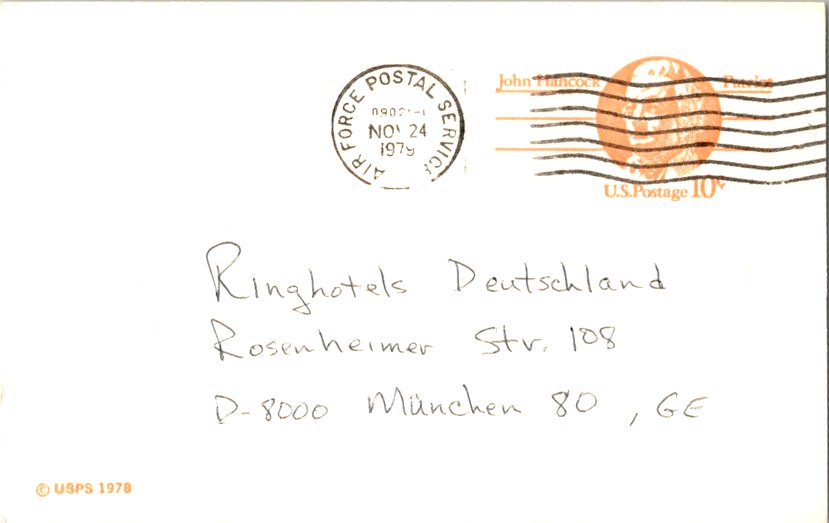 AIR FORCE POSTAL SERVICE
NOV 24
1979
John Hancock Patriot
U.S. Postage 10¢
Ringhotels Deutschland
Rosenheimer Str. 108
D-8000 München 80, GE
© USPS 1978